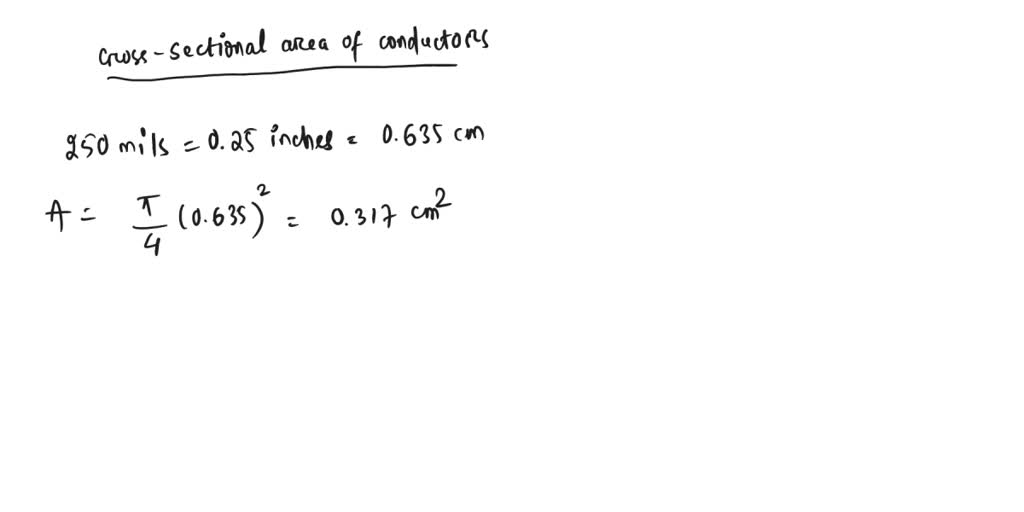 cross-sectional area of conductors
250 mils = 0.25 inches = 0.635 cm
A = π/4 (0.635)² = 0.317 cm²